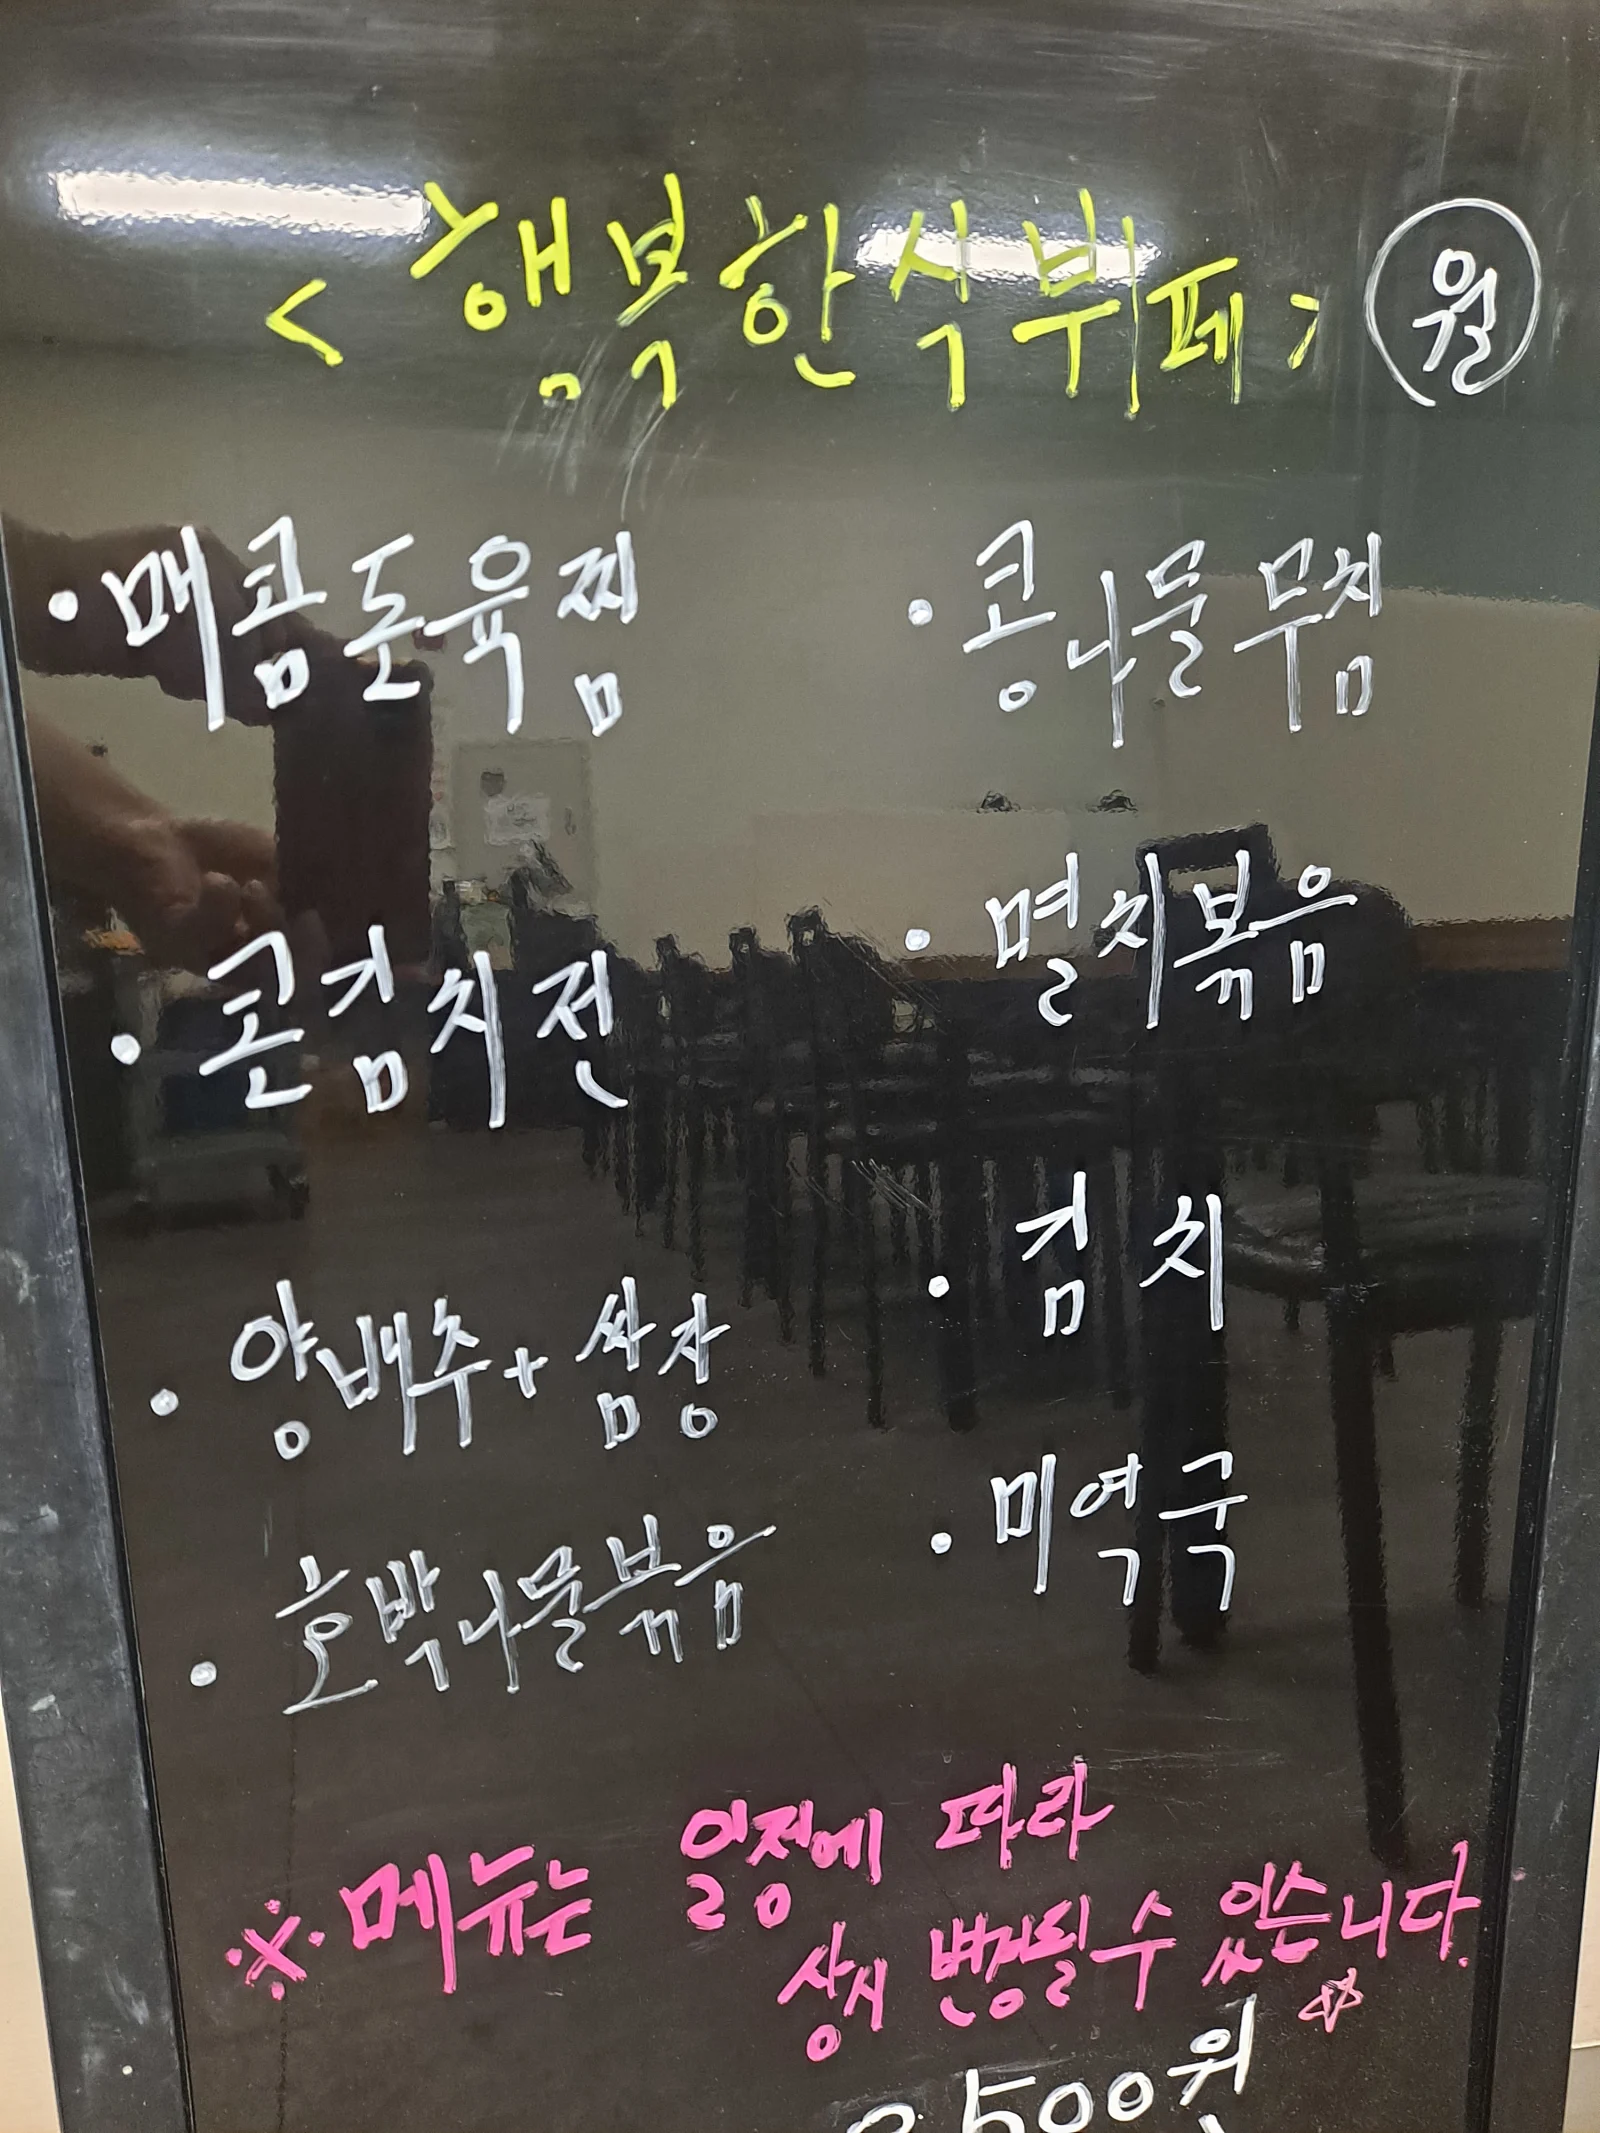 <행복한식뷔페> 월
· 매콤돈육찜
· 콩나물무침
· 콘김치전
· 멸치볶음
· 양배추+쌈장
· 김치
· 호박나물볶음
· 미역국
※ 메뉴는 일정에 따라
상시 변경될 수 있습니다.
500원